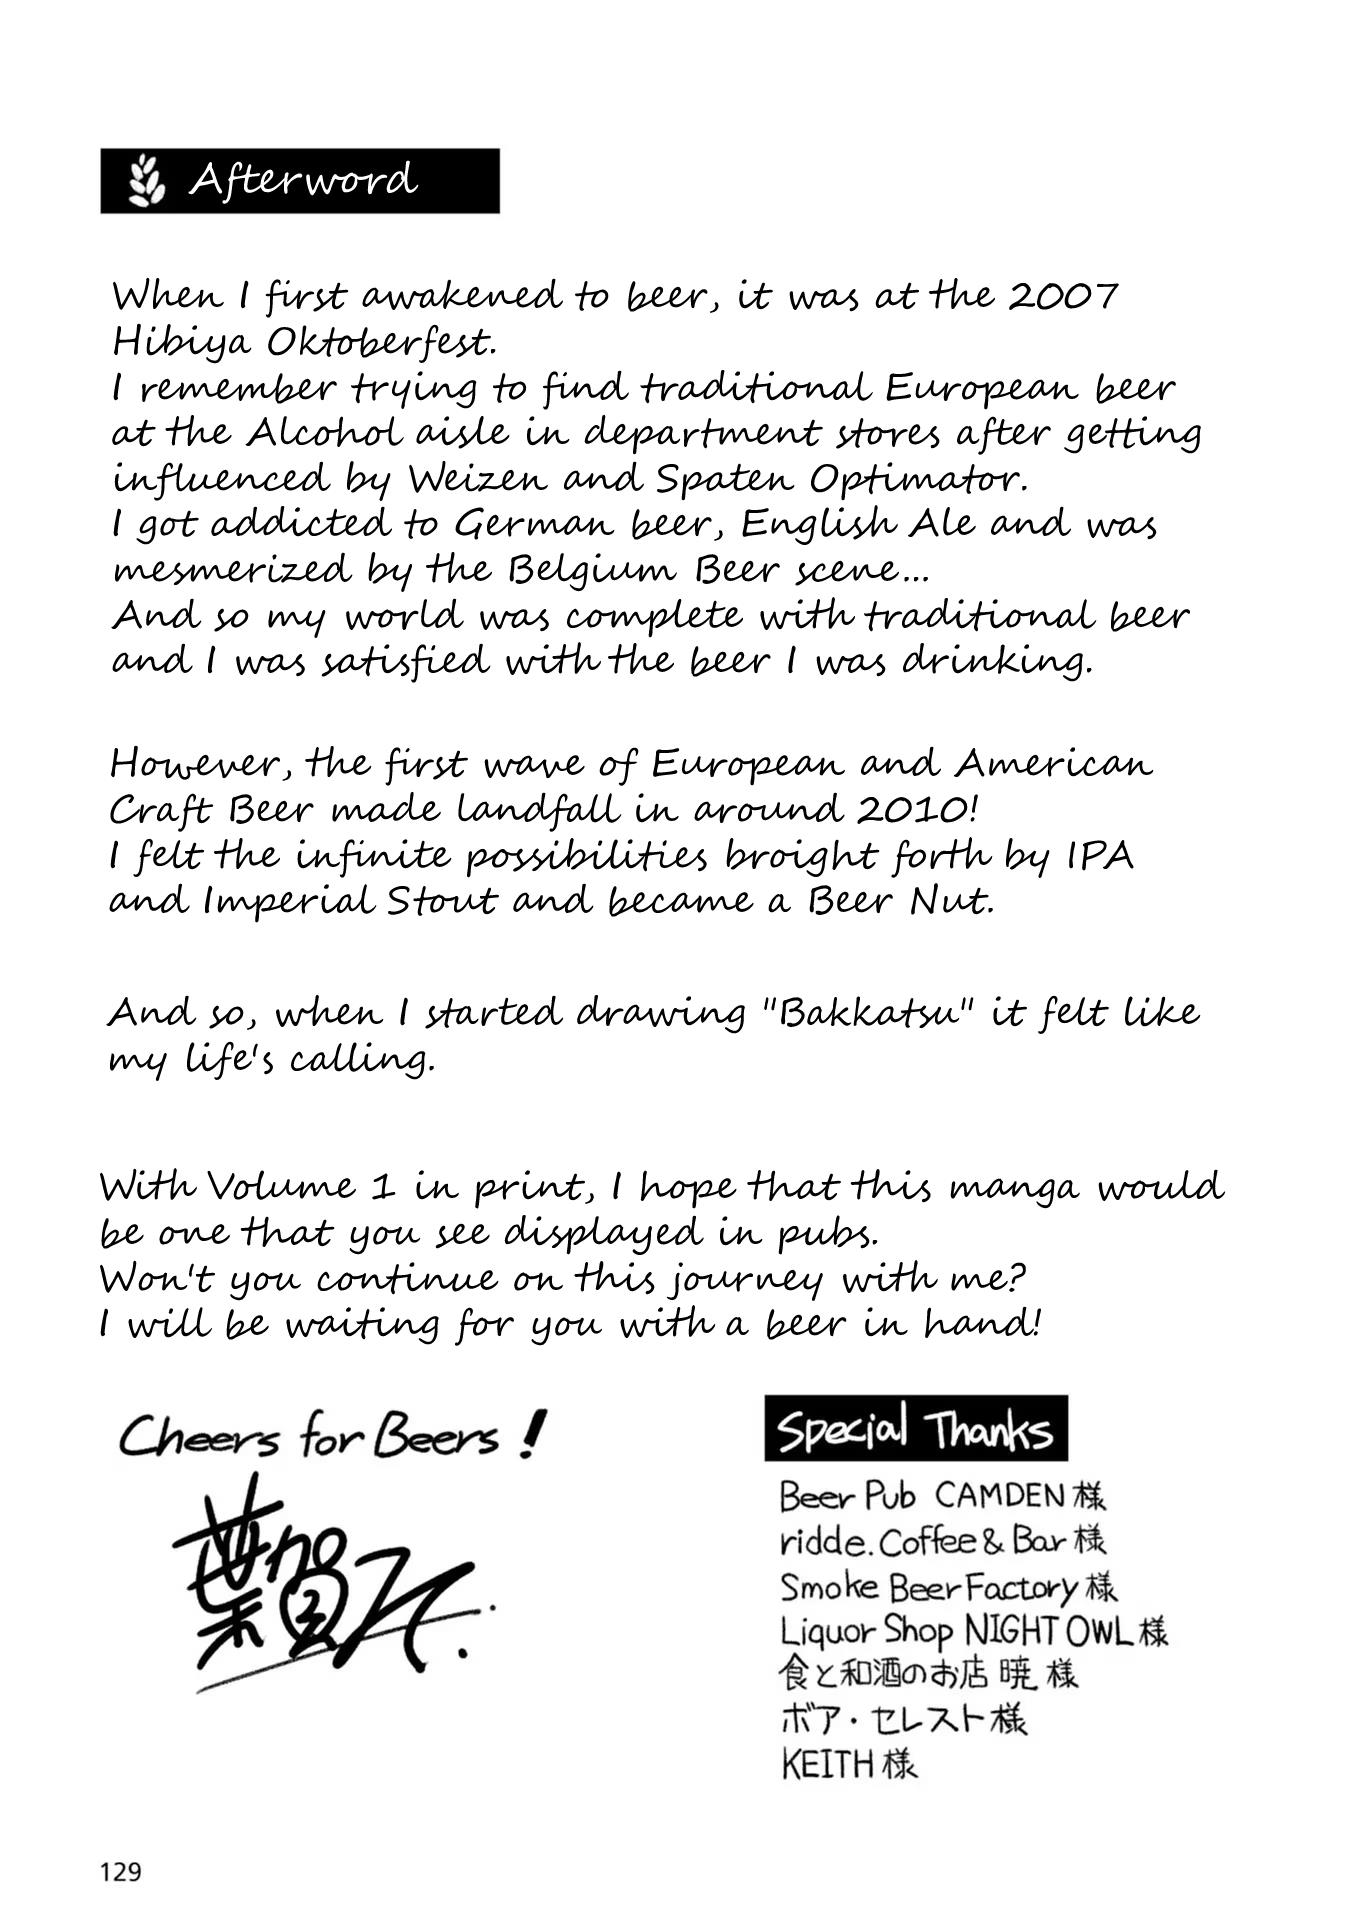 Afterword
When I first awakened to beer, it was at the 2007
Hibiya Oktoberfest.
I remember trying to find traditional European beer
at the Alcohol aisle in department stores after getting
influenced by Weizen and Spaten Optimator.
I got addicted to German beer, English Ale and was
mesmerized by the Belgium Beer scene...
And so my world was complete with traditional beer
and I was satisfied with the beer I was drinking.
However, the first wave of European and American
Craft Beer made landfall in around 2010!
I felt the infinite possibilities broight forth by IPA
and Imperial Stout and became a Beer Nut.
And so, when I started drawing "Bakkatsu" it felt like
my life's calling.
With Volume 1 in print, I hope that this manga would
be one that you see displayed in pubs.
Won't you continue on this journey with me?
I will be waiting for you with a beer in hand!
Cheers for Beers!
Special Thanks
Beer Pub CAMDEN様
ridde. Coffee & Bar様
Smoke Beer Factory様
Liquor Shop NIGHT OWL様
食と和酒のお店 暁 様
ボア・セレスト様
KEITH様
129